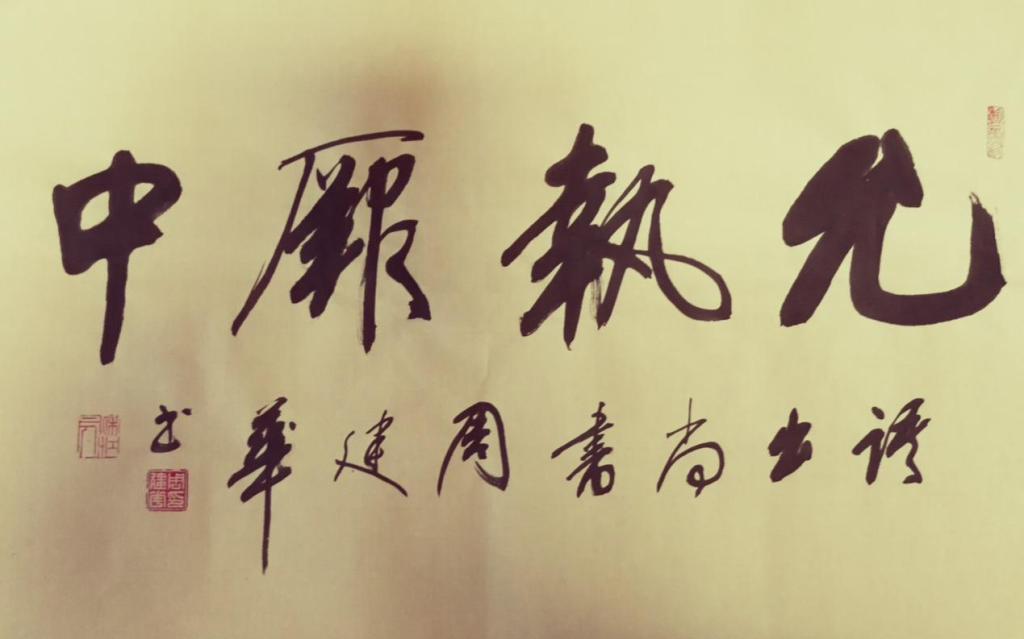 允執厥中
語出尚書周建華书